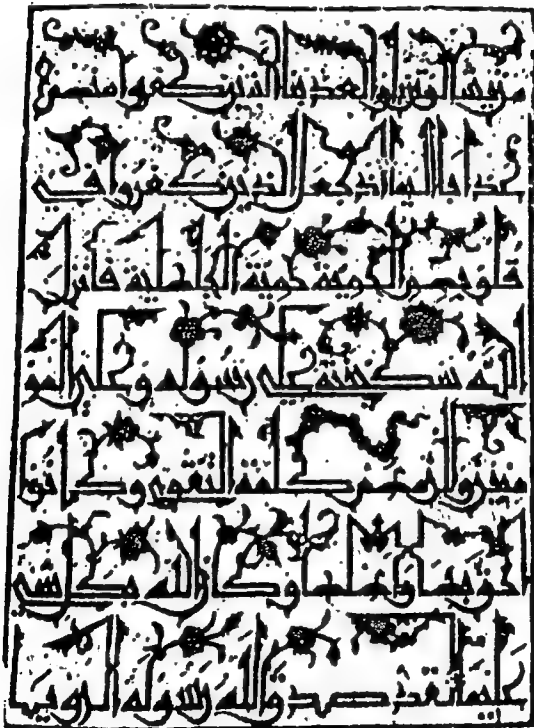 من يشا لو تزيلوا لعذبنا الذين كفروا منهم
عذابا اليما اذ جعل الذين كفروا في
قلوبهم الحمية حمية الجهلية فانزل
الله سكينته على رسوله وعلى المو
منين والزمهم كلمة التقوى وكانوا
احق بها واهلها وكان الله بكل شي
عليما لقد صدق الله رسوله الرويا